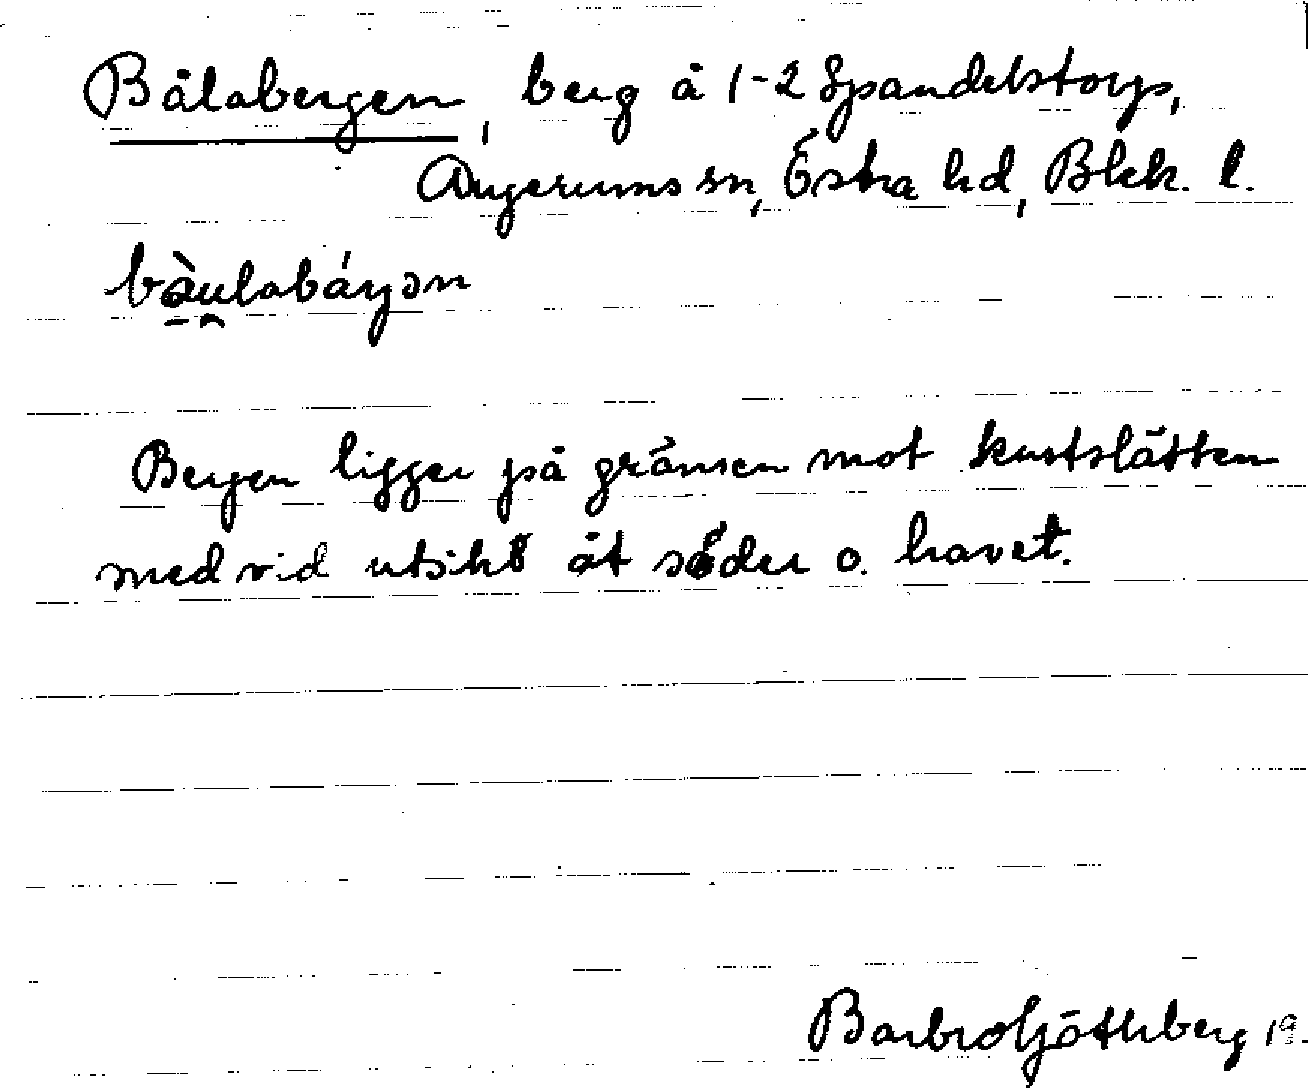 Bålabergen, berg å 1-2 Spandelstorp,
Augerums sn, Östra hd, Blek. l.
bàu̯labárgən
Bergen ligger på gränsen mot kustslätten
med vid utsikt åt söder o. havet.
Barbro Göthberg 19